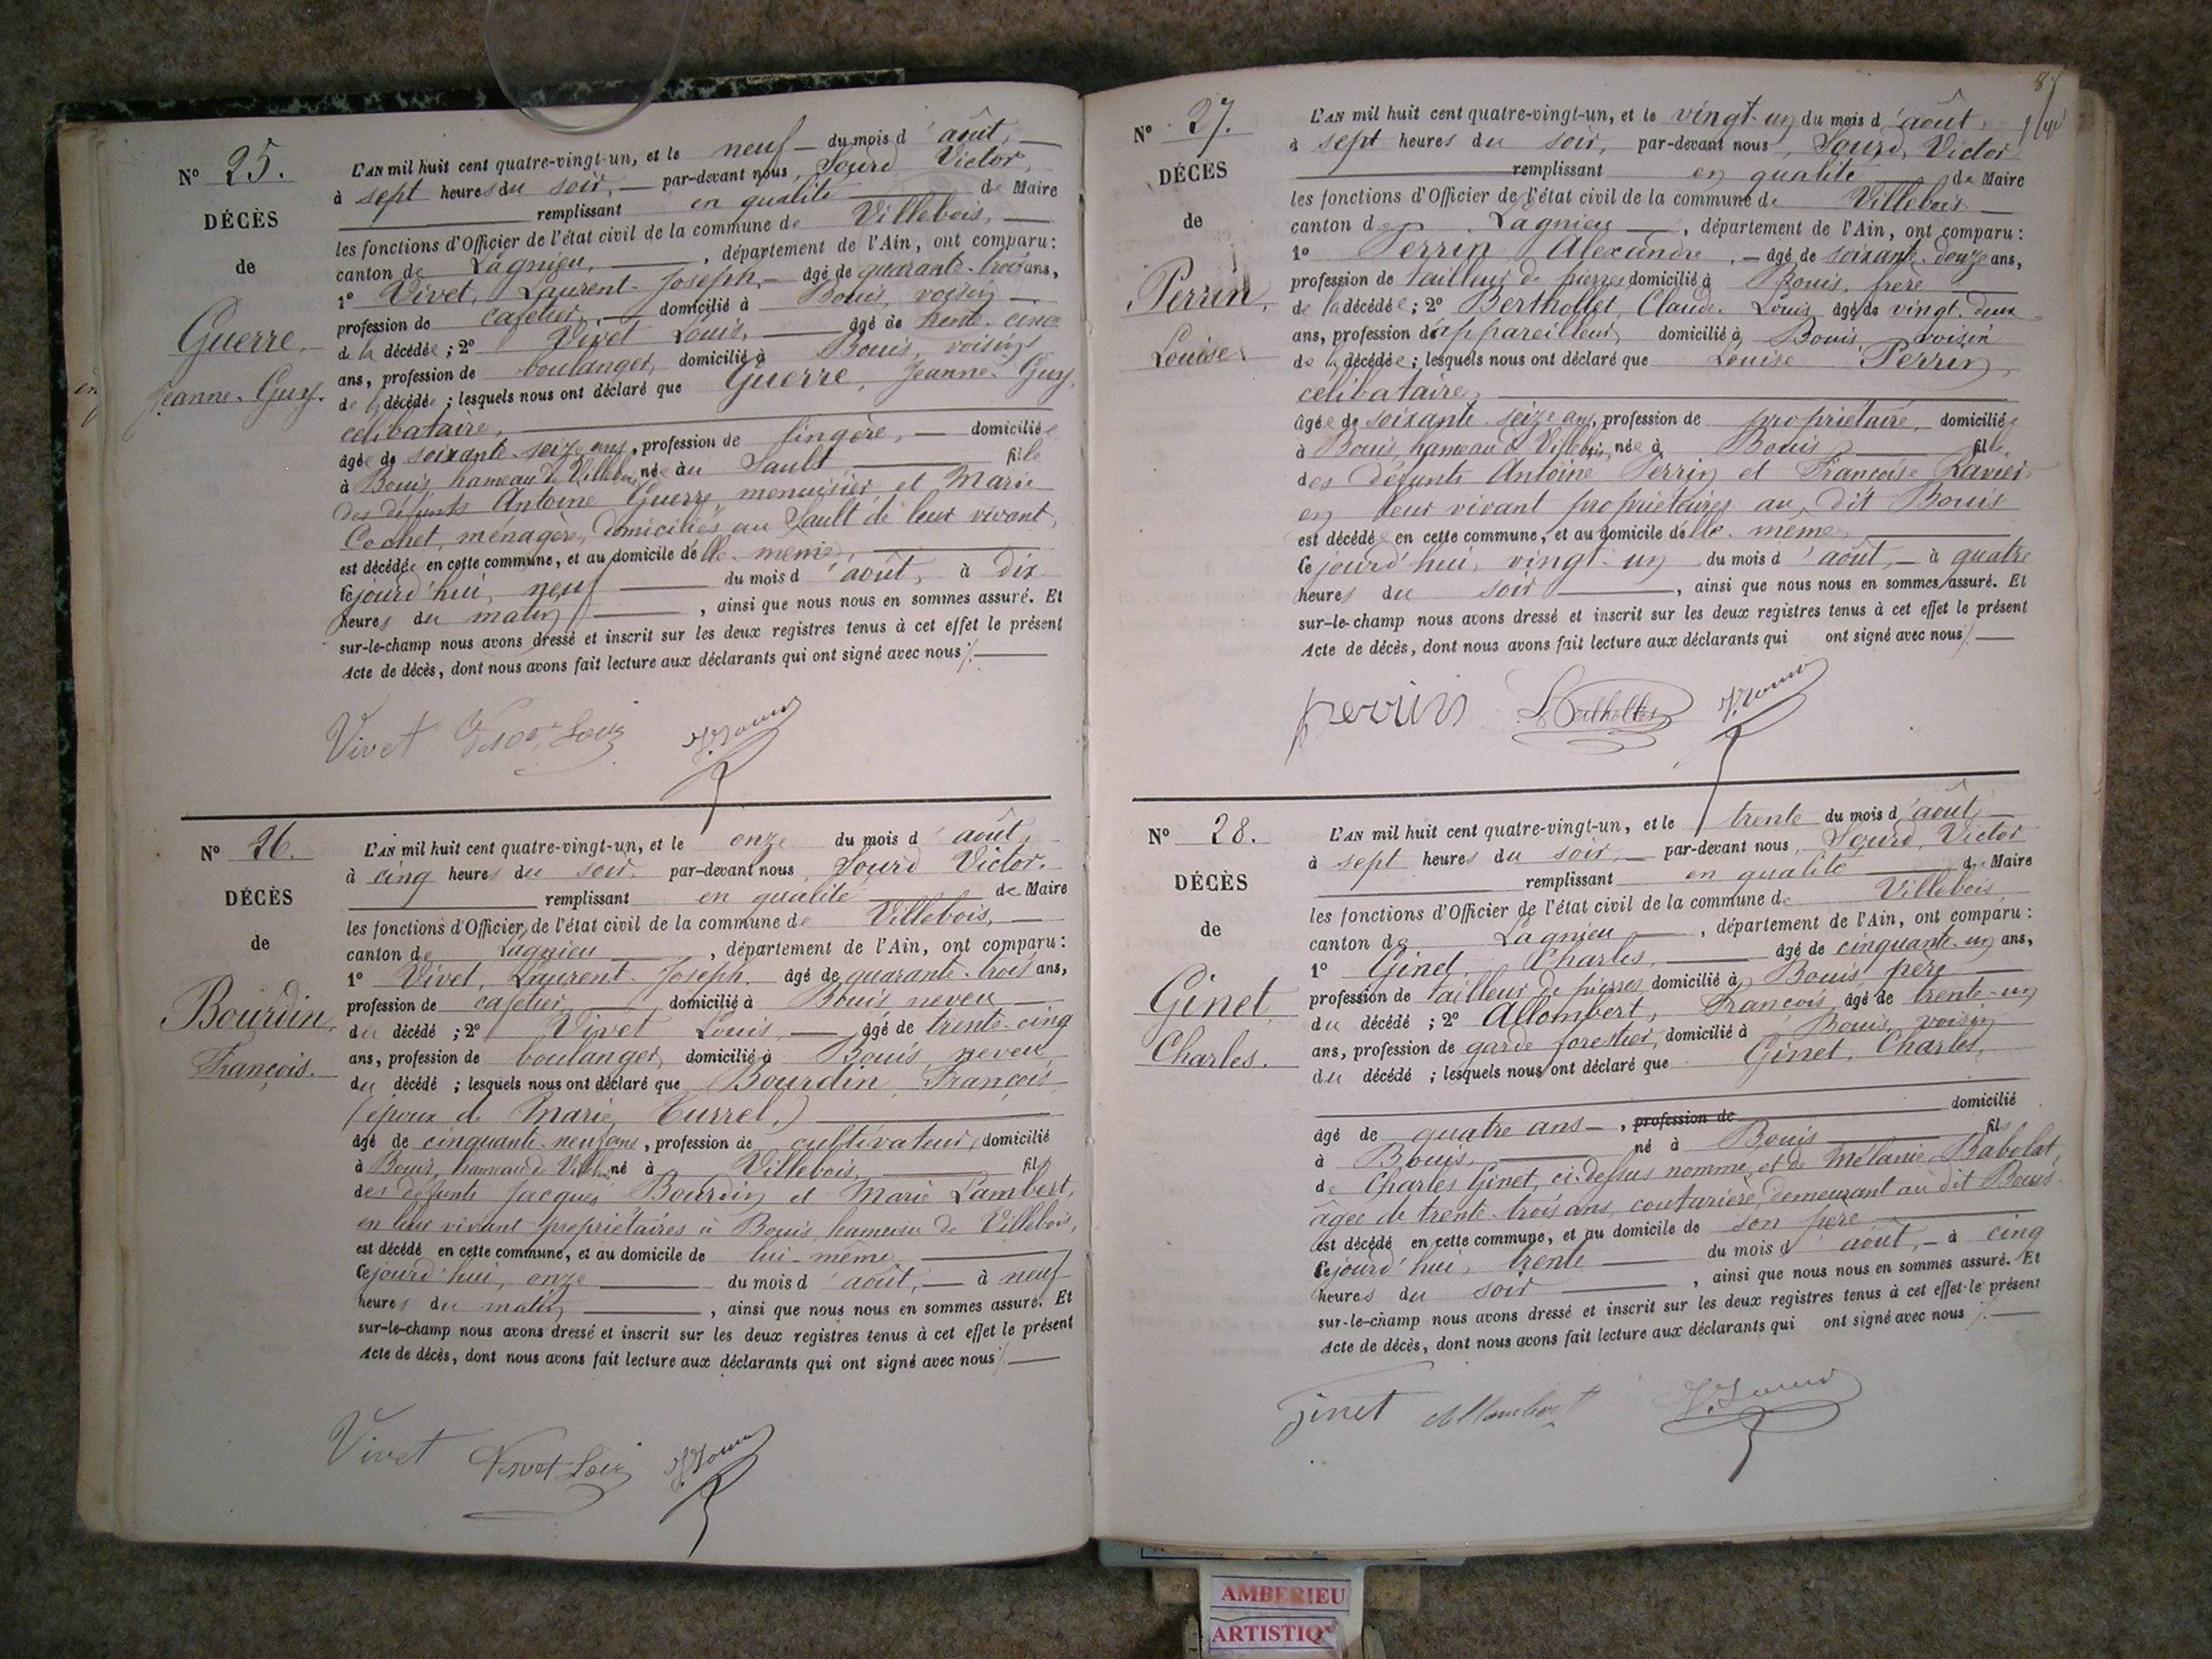 N° 25.
DÉCÈS
de
Guerre,
Jeanne-Guy.
L'AN mil huit cent quatre-vingt-un, et le neuf du mois d'août,
à sept heures du soir, par-devant nous, Sourd Victor,
remplissant en qualité de Maire
les fonctions d'Officier de l'état civil de la commune de Villebois,
canton de Lagnieu, département de l'Ain, ont comparu:
1° Vivet, Laurent-Joseph, âgé de quarante-trois ans,
profession de cafetier, domicilié à Bouis, voisin
de la décédée; 2° Vivet Louis, âgé de trente-cinq
ans, profession de boulanger, domicilié à Bouis, voisin
de la décédée; lesquels nous ont déclaré que Guerre, Jeanne-Guy,
célibataire,
âgée de soixante-seize ans, profession de lingère, domiciliée
à Bouis, hameau de Villebois, née au Sault fille
des défunts Antoine Guerre, menuisier et Marie
Cochet, ménagère, domiciliés au Sault de leur vivant,
est décédée en cette commune, et au domicile d'elle-même,
cejourd'hui, neuf du mois d'août, à dix
heures du matin, ainsi que nous nous en sommes assuré. Et
sur-le-champ nous avons dressé et inscrit sur les deux registres tenus à cet effet le présent
Acte de décès, dont nous avons fait lecture aux déclarants qui ont signé avec nous ./.
Vivet Vivet Louis V. Sourd
N° 26.
DÉCÈS
de
Bourdin,
François.
L'AN mil huit cent quatre-vingt-un, et le onze du mois d'août,
à cinq heures du soir, par-devant nous, Sourd Victor.
remplissant en qualité de Maire
les fonctions d'Officier de l'état civil de la commune de Villebois,
canton de Lagnieu, département de l'Ain, ont comparu:
1° Vivet, Laurent-Joseph. âgé de quarante-trois ans,
profession de cafetier, domicilié à Bouis neveu
du décédé; 2° Vivet Louis, âgé de trente-cinq
ans, profession de boulanger, domicilié à Bouis, neveu,
du décédé; lesquels nous ont déclaré que Bourdin François
(époux de Marie Turrel,)
âgé de cinquante-neuf ans, profession de cultivateur, domicilié
à Bouis, hameau de Villebois, né à Villebois, fils
des défunts Jacques Bourdin et Marie Lambert,
en leur vivant propriétaires à Bouis, hameau de Villebois,
est décédé en cette commune, et au domicile de lui-même
cejourd'hui, onze du mois d'août, à neuf
heures du matin, ainsi que nous nous en sommes assuré. Et
sur-le-champ nous avons dressé et inscrit sur les deux registres tenus à cet effet le présent
Acte de décès, dont nous avons fait lecture aux déclarants qui ont signé avec nous ./.
Vivet Vivet Louis V. Sourd
N° 27.
DÉCÈS
de
Perrin,
Louise.
L'AN mil huit cent quatre-vingt-un, et le vingt-un du mois d'août
à sept heures du soir, par-devant nous, Sourd, Victor
remplissant en qualité de Maire
les fonctions d'Officier de l'état civil de la commune de Villebois
canton de Lagnieu, département de l'Ain, ont comparu:
1° Perrin, Alexandre, âgé de soixante-douze ans,
profession de tailleur de pierres domicilié à Bouis, frère
de la décédée; 2° Berthollet, Claude-Louis âgé de vingt-deux
ans, profession d'appareilleur, domicilié à Bouis, voisin
de la décédée; lesquels nous ont déclaré que Louise Perrin,
célibataire,
âgée de soixante-seize ans, profession de propriétaire, domiciliée
à Bouis, hameau de Villebois, née à Bouis fille
des défunts Antoine Perrin et Françoise Ravier
en leur vivant propriétaires au dit Bouis
est décédée en cette commune, et au domicile d'elle-même
cejourd'hui, vingt-un du mois d'août, à quatre
heures du soir, ainsi que nous nous en sommes assuré. Et
sur-le-champ nous avons dressé et inscrit sur les deux registres tenus à cet effet le présent
Acte de décès, dont nous avons fait lecture aux déclarants qui ont signé avec nous ./.
perrin L. Berthollet V. Sourd
N° 28.
DÉCÈS
de
Ginet,
Charles.
L'AN mil huit cent quatre-vingt-un, et le trente du mois d'août,
à sept heures du soir, par-devant nous, Sourd, Victor
remplissant en qualité de Maire
les fonctions d'Officier de l'état civil de la commune de Villebois
canton de Lagnieu, département de l'Ain, ont comparu:
1° Ginet, Charles, âgé de cinquante-un ans,
profession de tailleur de pierres, domicilié à Bouis, père
du décédé; 2° Allombert, François, âgé de trente-un
ans, profession de garde forestier, domicilié à Bouis, voisin
du décédé; lesquels nous ont déclaré que Ginet, Charles,
domicilié
âgé de quatre ans, profession de
à Bouis, né à Bouis fils
de Charles Ginet, ci-dessus nommé, et de Mélanie Babolat,
âgée de trente-trois ans, couturière, demeurant au dit Bouis
est décédé en cette commune, et au domicile de son père
cejourd'hui, trente du mois d'août, à cinq
heures du soir, ainsi que nous nous en sommes assuré. Et
sur-le-champ nous avons dressé et inscrit sur les deux registres tenus à cet effet le présent
Acte de décès, dont nous avons fait lecture aux déclarants qui ont signé avec nous ./.
Ginet Allombert V. Sourd
AMBERIEU
ARTISTIQ